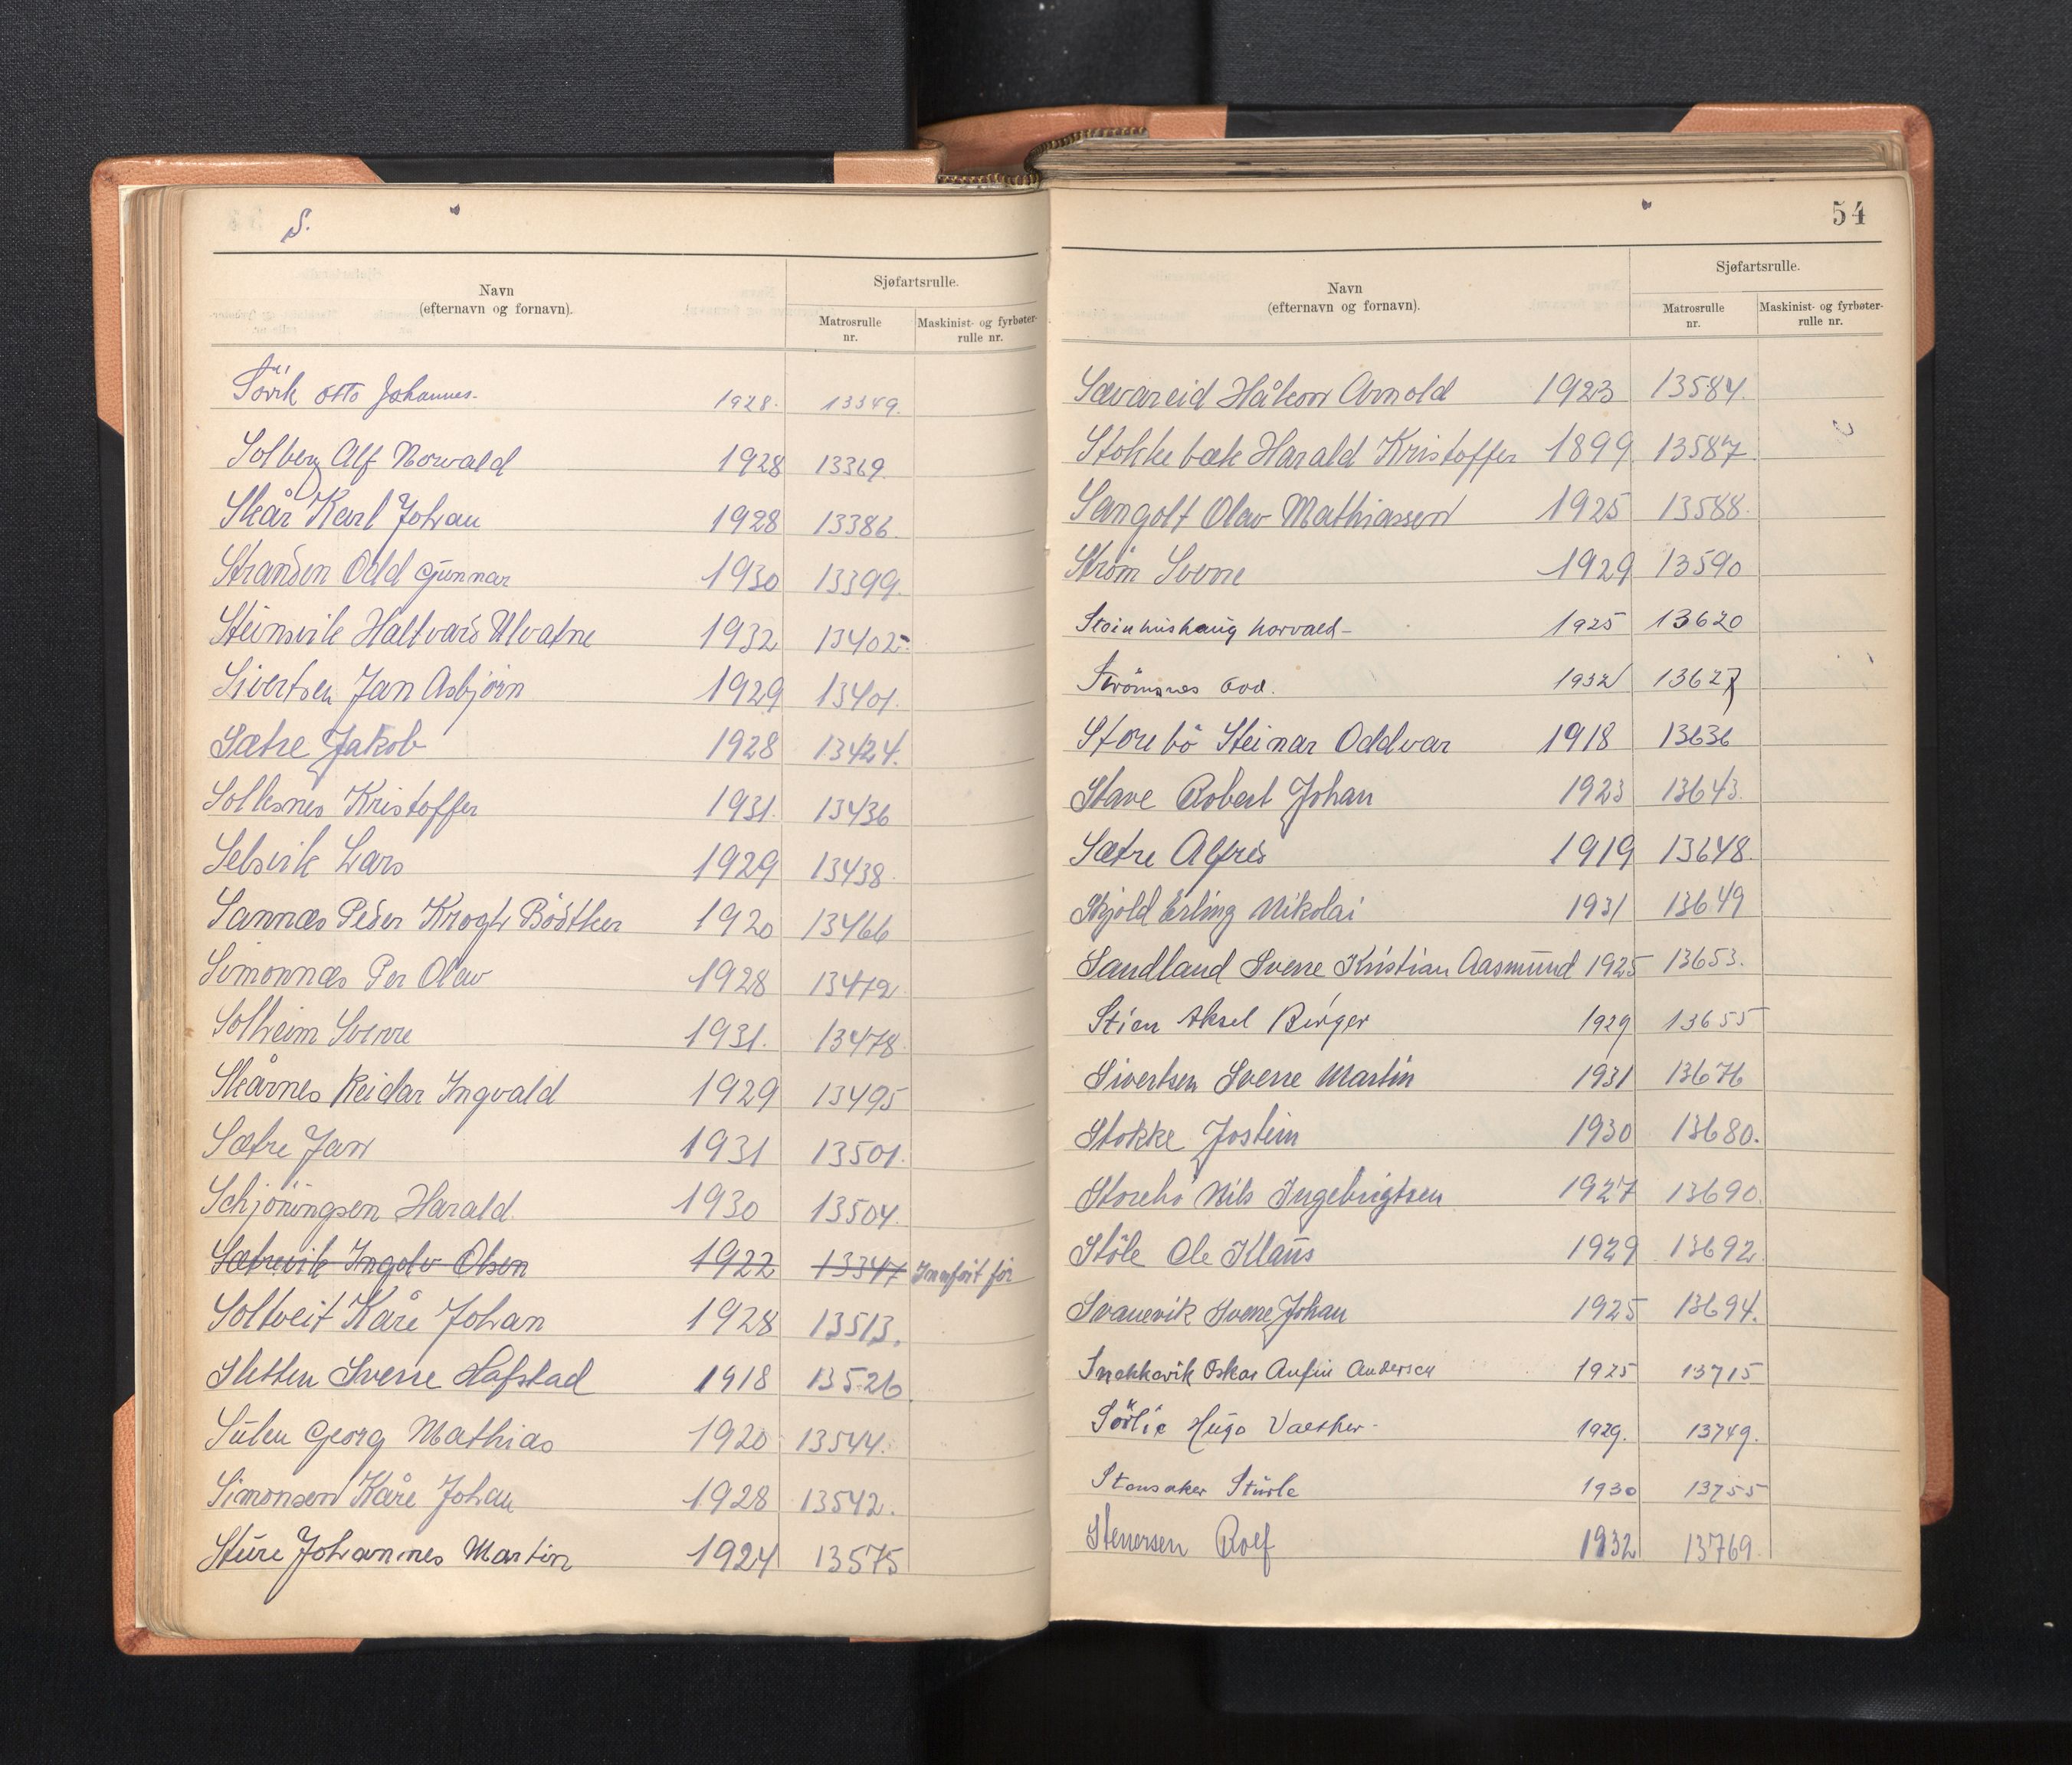 S.
Navn
(efternavn og fornavn).
Sjøfartsrulle.
Matrosrulle
nr.
Maskinist- og fyrbøter-
rulle nr.
Søvik Otto Johannes. 1928. 13349.
Solberg Alf Norvald 1928 13369.
Skår Karl Johan 1928 13386.
Stranden Odd Gunnar 1930 13399.
Steinsvik Haltvard Ulvatne 1932 13402.
Sivertsen Jan Asbjørn 1929 13401.
Sætre Jakob 1928 13424.
Sollesnes Kristoffer 1931. 13436
Selsvik Lars 1929 13438.
Sannæs Peder Krogh Bödtker 1920 13466
Simonnæs Per Olav 1928 13472
Solheim Sverre 1931. 13478.
Skårnes Reidar Ingvald 1929 13495
Sætre Jan 1931 13501.
Schjöningsen Harald. 1930 13504.
Sætrevik Ingolv Olsen 1922 13347 Innført før
Soltveit Kåre Johan 1928 13513.
Sletten Sverre Hafstad 1918 13526.
Sulen Georg Mathias 1920 13544.
Simonsen Kåre Johan 1928 13542.
Sture Johannes Martin 1924 13575
54
Navn
(efternavn og fornavn).
Sjøfartsrulle.
Matrosrulle
nr.
Maskinist- og fyrbøter-
rulle nr.
Sævareid Håkon Arnold 1923 13584.
Stokkebæk Harald Kristoffer 1899 13587.
Sangolt Olav Mathiassen 1925 13588.
Strøm Sverre 1929 13590
Norvald 1925 13620
Strömsnes Odd. 1932 13627
Storebö Steinar Oddvar 1918 13636
Stave Robert Johan 1923 13643.
Sætre Alfred 1919 13648.
Skjold Erling Nikolai 1931 13649
Sandland Sverre Kristian Aasmund 1925 13653.
Stien Aksel Birger 1929 13655
Sivertsen Sverre Martin 1931 13676
Stokke Jostein 1930 13680.
Storebö Nils Ingebrigtsen 1927 13690.
Støle Ole Klaus 1929 13692.
Svanevik Sverre Johan 1925 13694.
Snekkevik Oskar Anfin Andersen 1925 13715
Sörlie Hugo Valther. 1929. 13749.
Stensaker Sturle 1930 13755
Stenersen Rolf 1932 13769.